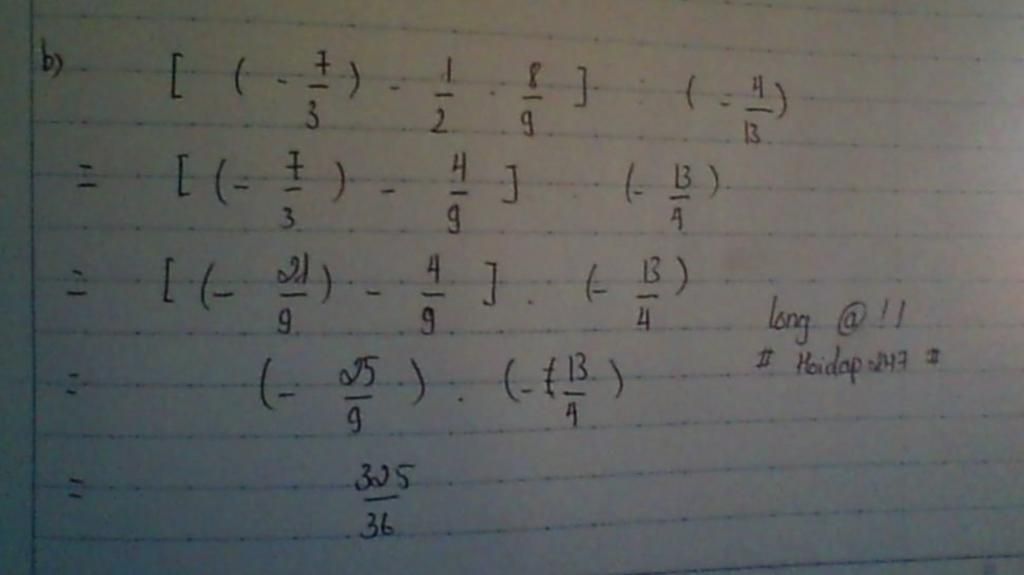 b) [ ( - 7/3 ) - 1/2 . 8/9 ] : ( - 4/13 )
= [ ( - 7/3 ) - 4/9 ] . ( - 13/4 )
= [ ( - 21/9 ) - 4/9 ] . ( - 13/4 )
= ( - 25/9 ) . ( - 13/4 )
= 325/36
long @ ! !
# Hoidap247 #